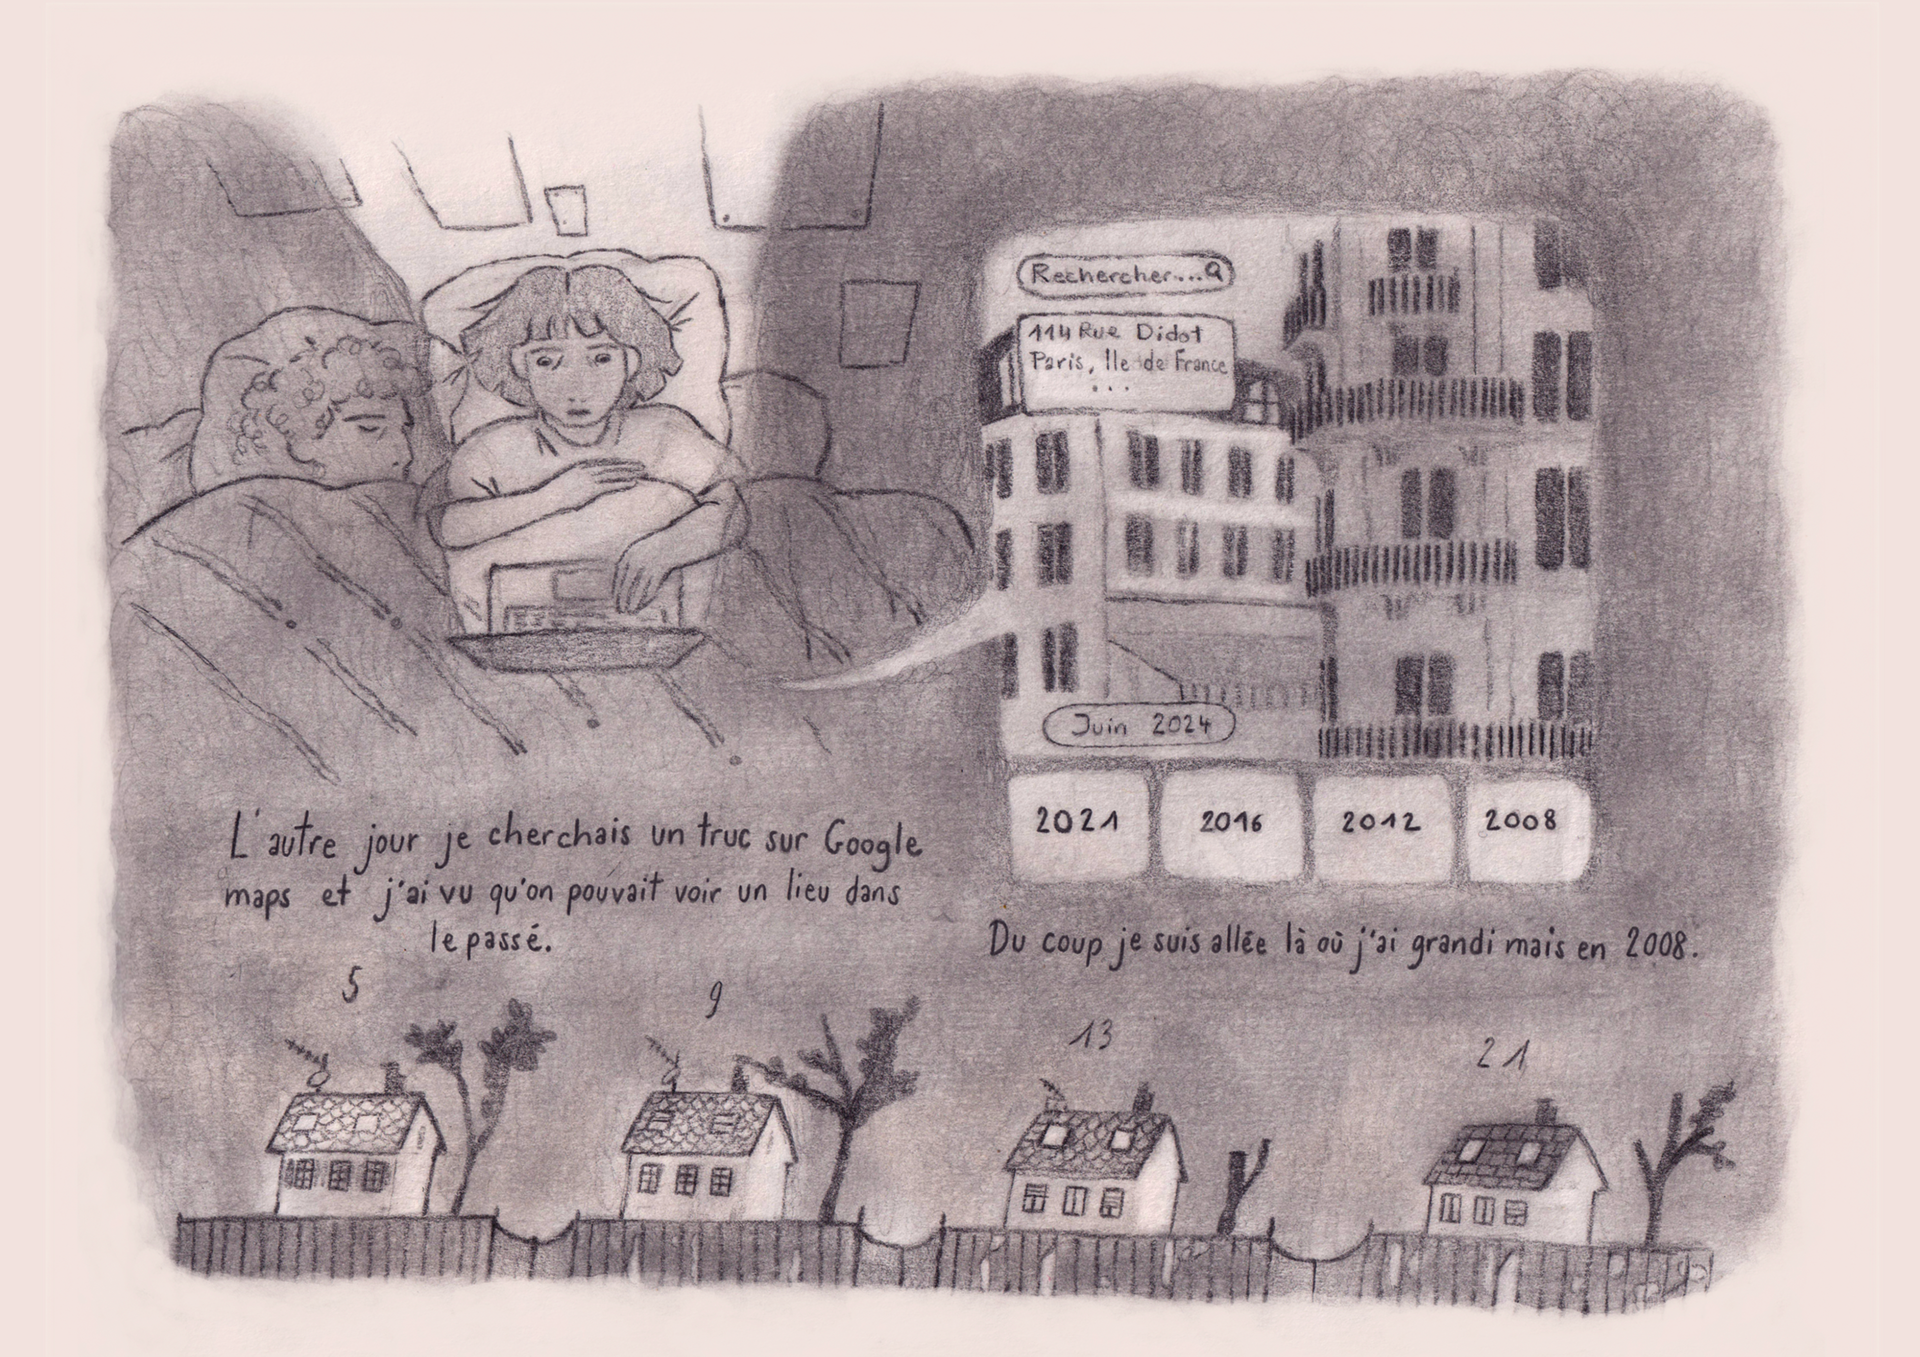 Rechercher...
114 Rue Didot
Paris, Île de France
...
Juin 2024
2021
2016
2012
2008
L'autre jour je cherchais un truc sur Google
maps et j'ai vu qu'on pouvait voir un lieu dans
le passé.
Du coup je suis allée là où j'ai grandi mais en 2008.
5
9
13
21